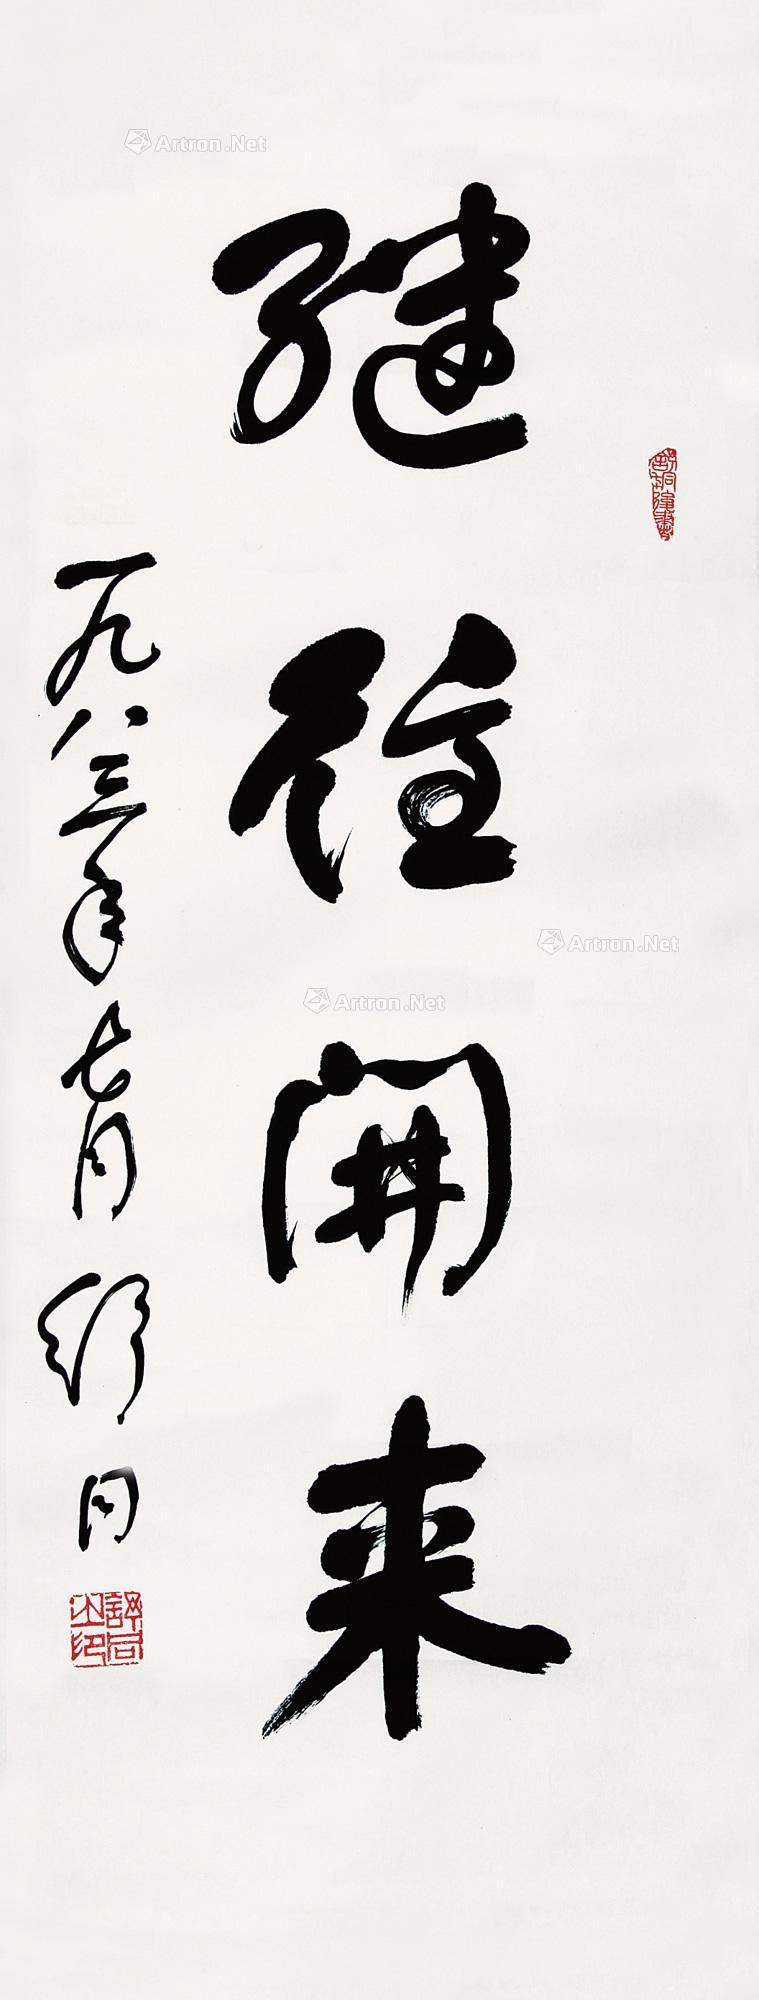 继往開来
一九八三年七月 舒同
舒同之印
Artron.Net
Artron.Net
Artron.Net